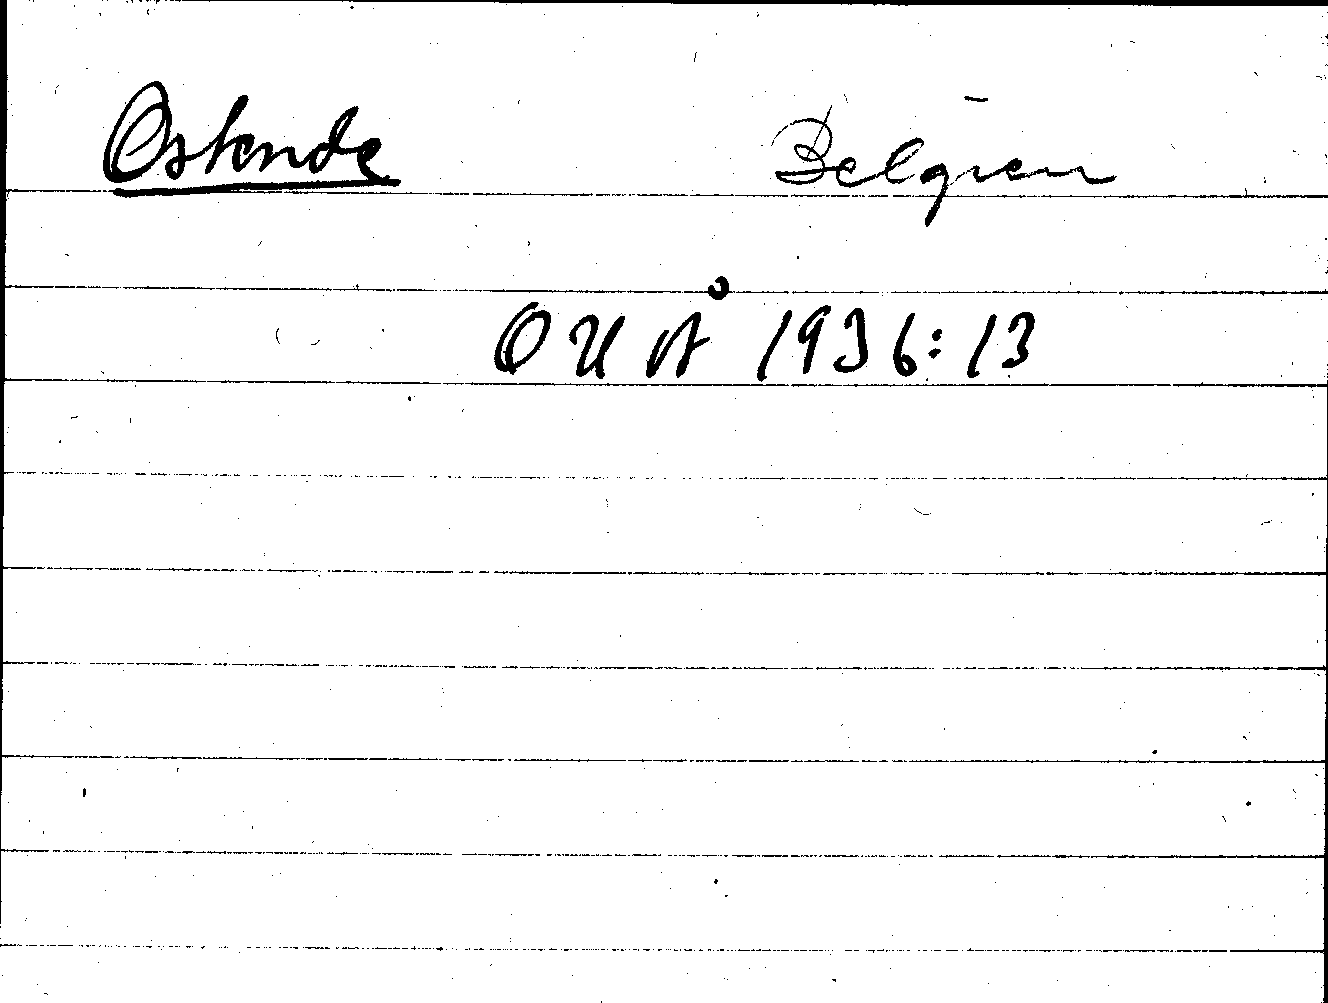 Ostende Belgien
OUÅ 1936:13